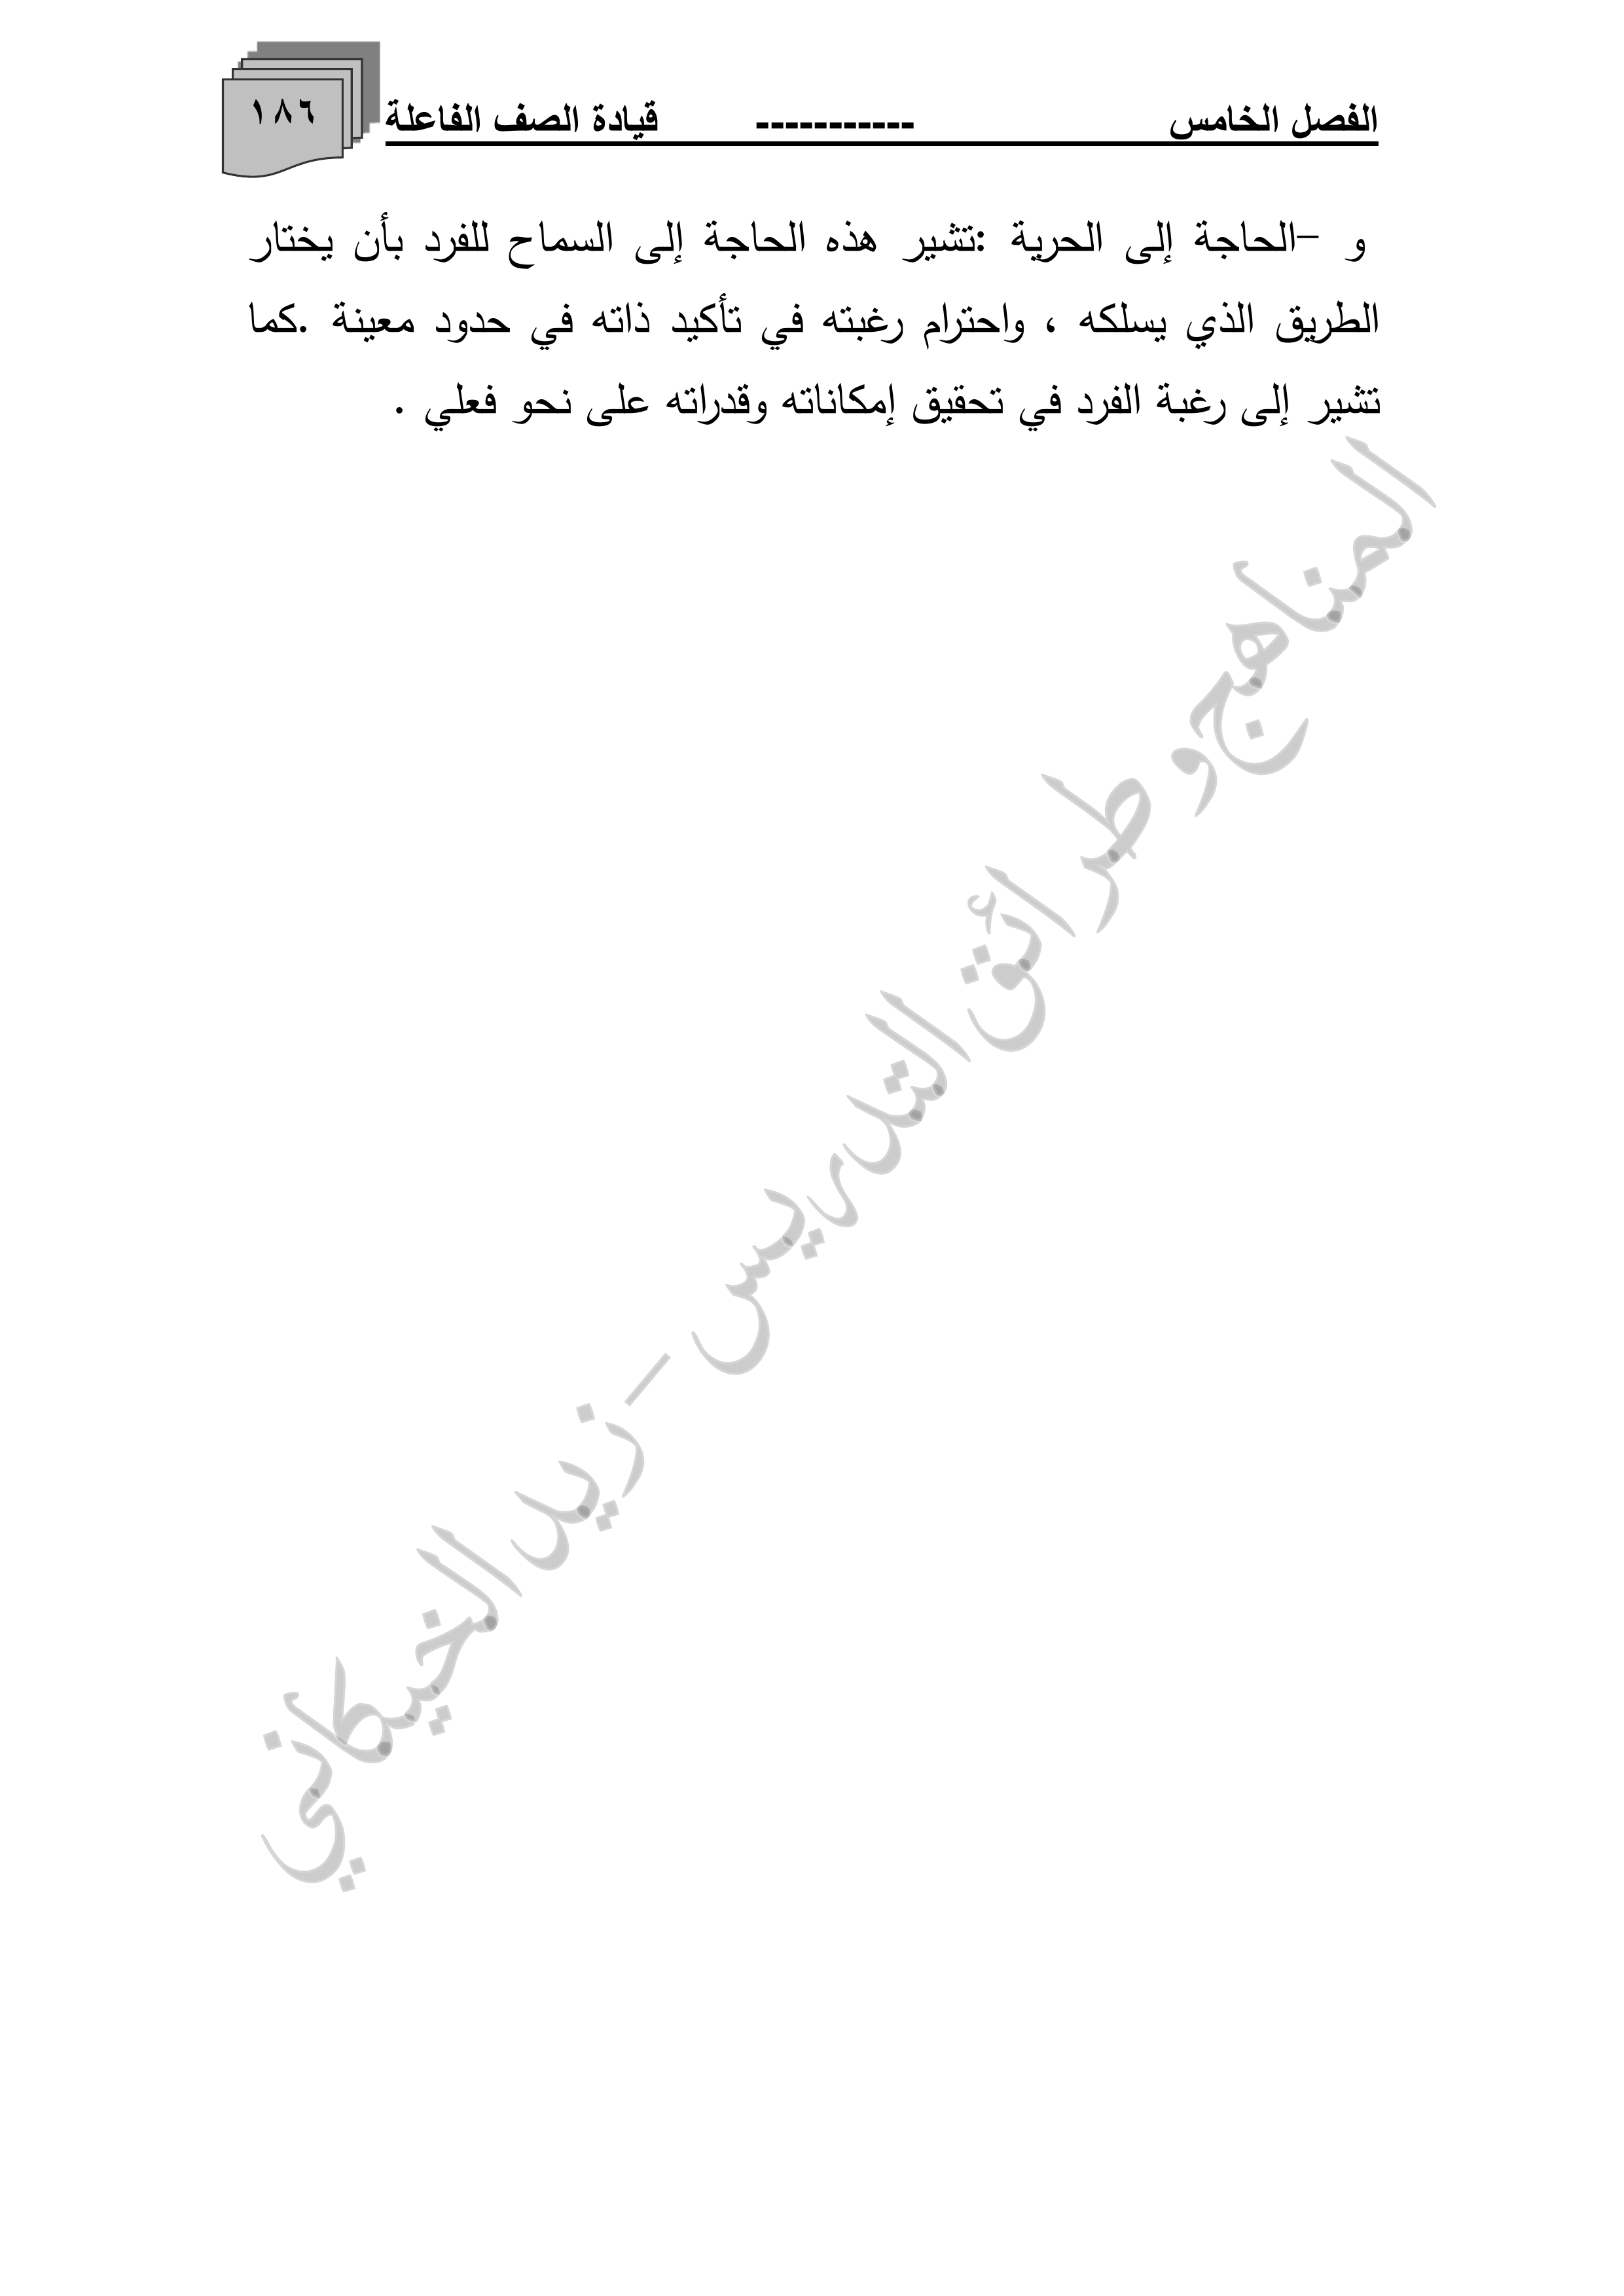 الفصل الخامس ----------- قيادة الصف الفاعلة ١٨٦
و –الحاجة إلى الحرية :تشير هذه الحاجة إلى السماح للفرد بأن يختار
الطريق الذي يسلكه ، واحترام رغبته في تأكيد ذاته في حدود معينة .كما
تشير إلى رغبة الفرد في تحقيق إمكاناته وقدراته على نحو فعلي .
المناهج و طرائق التدريس – زيد الخيكاني